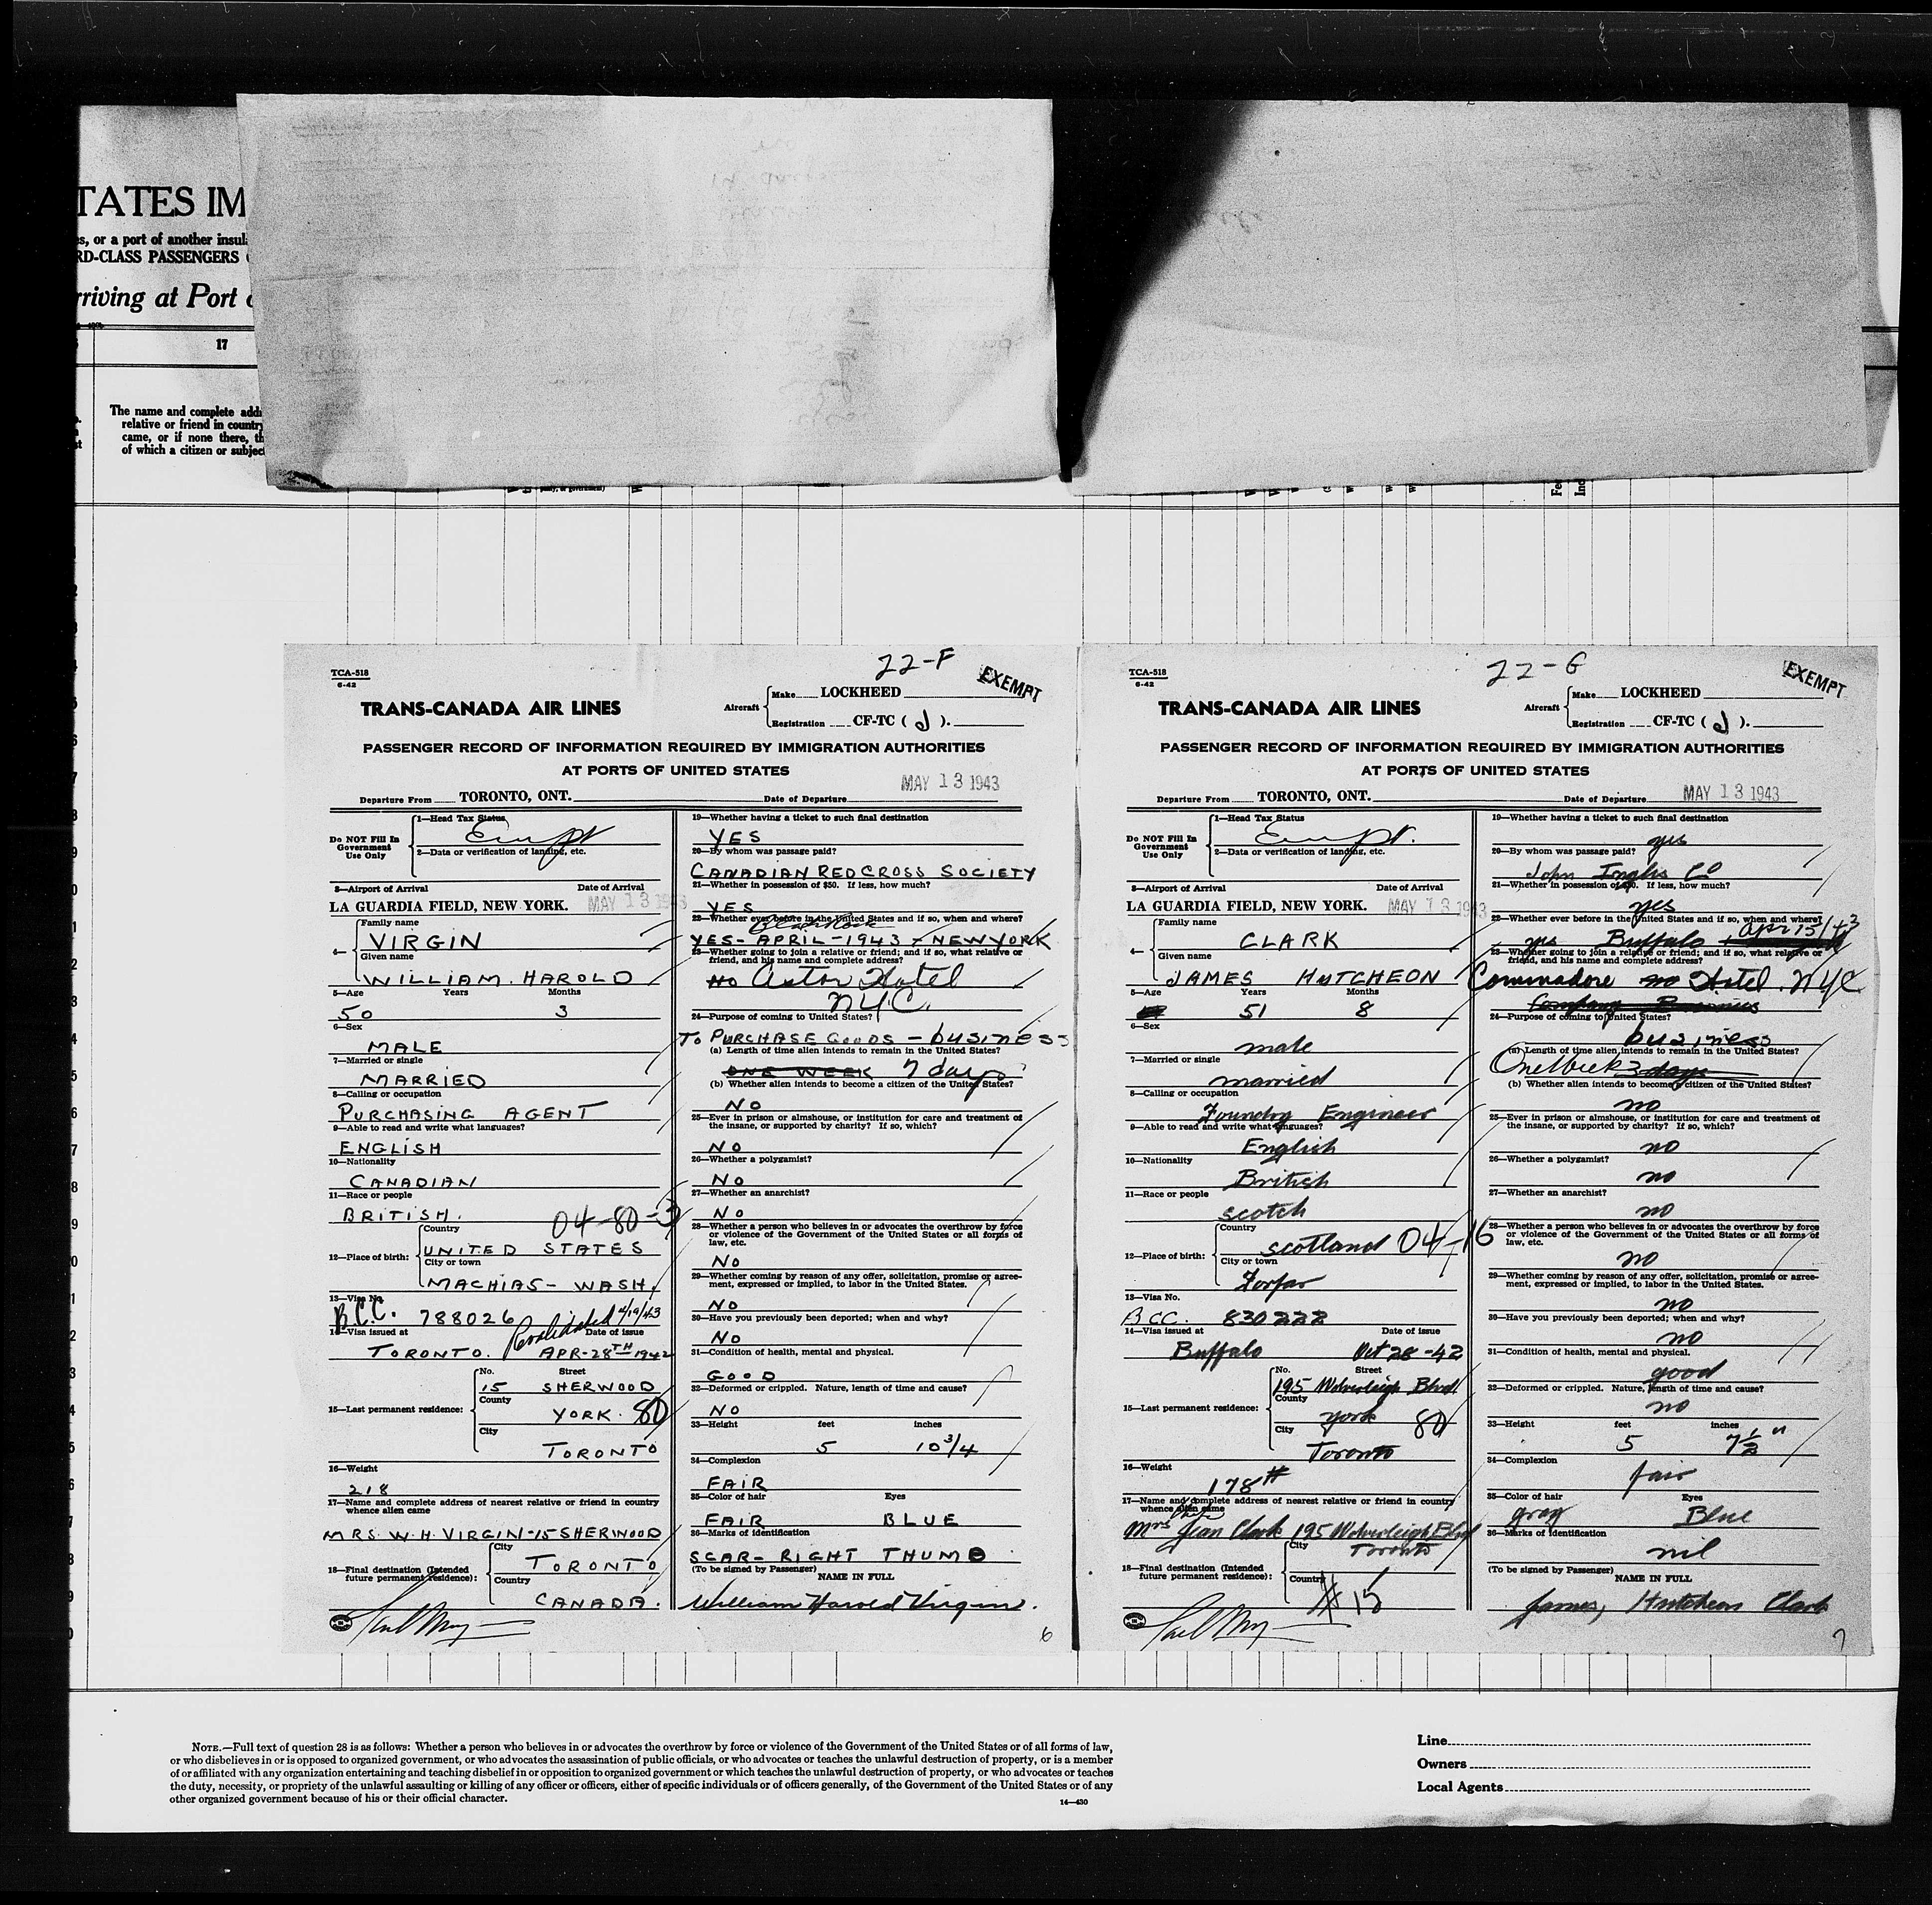 TATES IM
es, or a port of another insul
RD-CLASS PASSENGERS
rriving at Port
17
The name and complete add
relative or friend in country
came, or if none there, th
of which a citizen or subject
22-F
EXEMPT
TCA-518
6-42
TRANS-CANADA AIR LINES
Aircraft
Make LOCKHEED
Registration CF-TC ( J ).
PASSENGER RECORD OF INFORMATION REQUIRED BY IMMIGRATION AUTHORITIES
AT PORTS OF UNITED STATES
MAY 13 1943
Departure From TORONTO, ONT. Date of Departure
Do NOT Fill In
Government
Use Only
1—Head Tax Status
Exempt
2—Data or verification of landing, etc.
3—Airport of Arrival Date of Arrival
LA GUARDIA FIELD, NEW YORK. MAY 13 1943
4— Family name
VIRGIN
Given name
WILLIAM. HAROLD
5—Age Years Months
50 3
6—Sex
MALE
7—Married or single
MARRIED
8—Calling or occupation
PURCHASING AGENT
9—Able to read and write what languages?
ENGLISH
10—Nationality
CANADIAN
11—Race or people
BRITISH. 04-80-3
12—Place of birth:
Country
UNITED STATES
City or town
MACHIAS- WASH.
13—Visa No.
B.C.C. 788026 Revalidated 4/19/43
14—Visa issued at Date of issue
TORONTO. APR-28TH 1942
15—Last permanent residence:
No. Street
15 SHERWOOD
County
YORK. 80
City
TORONTO
16—Weight
218
17—Name and complete address of nearest relative or friend in country
whence alien came
MRS. W.H. VIRGIN-15 SHERWOOD
18—Final destination (Intended
future permanent residence):
City
TORONTO
Country
CANADA.
19—Whether having a ticket to such final destination
YES
20—By whom was passage paid?
CANADIAN RED CROSS SOCIETY
21—Whether in possession of $50. If less, how much?
YES
22—Whether ever before in the United States and if so, when and where?
Black Rock
YES- APRIL-1943 - NEW YORK
23—Whether going to join a relative or friend; and if so, what relative or
friend, and his name and complete address?
No Astor Hotel
NYC.
24—Purpose of coming to United States?
TO PURCHASE GOODS - business
(a) Length of time alien intends to remain in the United States?
ONE WEEK 7 days
(b) Whether alien intends to become a citizen of the United States?
NO
25—Ever in prison or almshouse, or institution for care and treatment of
the insane, or supported by charity? If so, which?
NO
26—Whether a polygamist?
NO
27—Whether an anarchist?
NO
28—Whether a person who believes in or advocates the overthrow by force
or violence of the Government of the United States or all forms of
law, etc.
NO
29—Whether coming by reason of any offer, solicitation, promise or agree-
ment, expressed or implied, to labor in the United States.
NO
30—Have you previously been deported; when and why?
NO
31—Condition of health, mental and physical.
GOOD
32—Deformed or crippled. Nature, length of time and cause?
NO
33—Height feet inches
5 10 3/4
34—Complexion
FAIR
35—Color of hair Eyes
FAIR BLUE
36—Marks of identification
SCAR- RIGHT THUMB
(To be signed by Passenger)
NAME IN FULL
William Harold Virgin.
6
22-G
EXEMPT
TCA-518
6-42
TRANS-CANADA AIR LINES
Aircraft
Make LOCKHEED
Registration CF-TC ( J ).
PASSENGER RECORD OF INFORMATION REQUIRED BY IMMIGRATION AUTHORITIES
AT PORTS OF UNITED STATES
MAY 13 1943
Departure From TORONTO, ONT. Date of Departure
Do NOT Fill In
Government
Use Only
1—Head Tax Status
Exempt.
2—Data or verification of landing, etc.
3—Airport of Arrival Date of Arrival
LA GUARDIA FIELD, NEW YORK. MAY 13 1943
4— Family name
CLARK
Given name
JAMES HUTCHEON
5—Age Years Months
51 8
6—Sex
male
7—Married or single
married
8—Calling or occupation
Foundry Engineer
9—Able to read and write what languages?
English
10—Nationality
British
11—Race or people
scotch
12—Place of birth:
Country
scotland 04-16
City or town
Forfar
13—Visa No.
BCC. 830222
14—Visa issued at Date of issue
Buffalo Oct 28-42
15—Last permanent residence:
No. Street
195 Wolverleigh Blvd.
County
york 80
City
Toronto
16—Weight
178#
17—Name and complete address of nearest relative or friend in country
whence alien came
Wife
Mrs Jean Clark 195 Wolverleigh Blvd
Toronto
18—Final destination (Intended
future permanent residence):
City
Country
#15
19—Whether having a ticket to such final destination
yes
20—By whom was passage paid?
John Inglis Co
21—Whether in possession of $50. If less, how much?
yes
22—Whether ever before in the United States and if so, when and where?
yes Buffalo Apr 15/43
23—Whether going to join a relative or friend; and if so, what relative or
friend, and his name and complete address?
Commadore no Hotel. NYC
Company Business
24—Purpose of coming to United States?
business
(a) Length of time alien intends to remain in the United States?
One Week 3 days
(b) Whether alien intends to become citizen of the United States?
no
25—Ever in prison or almshouse, or institution for care and treatment of
the insane, or supported by charity? If so, which?
no
26—Whether a polygamist?
no
27—Whether an anarchist?
no
28—Whether a person who believes in or advocates the overthrow by force
or violence of the Government of the United States or all forms of
law, etc.
no
29—Whether coming by reason of any offer, solicitation, promise or agree-
ment, expressed or implied, to labor in the United States.
no
30—Have you previously been deported; when and why?
no
31—Condition of health, mental and physical.
good
32—Deformed or crippled. Nature, length of time and cause?
no
33—Height feet inches
5 7 1/2"
34—Complexion
fair
35—Color of hair Eyes
gray Blue
36—Marks of identification
nil
(To be signed by Passenger)
NAME IN FULL
James, Hutcheon Clark
7
NOTE.—Full text of question 28 is as follows: Whether a person who believes in or advocates the overthrow by force or violence of the Government of the United States or of all forms of law,
or who disbelieves in or is opposed to organized government, or who advocates the assassination of public officials, or who advocates or teaches the unlawful destruction of property, or is a member
of or affiliated with any organization entertaining and teaching disbelief in or opposition to organized government or which teaches the unlawful destruction of property, or who advocates or teaches
the duty, necessity, or propriety of the unlawful assaulting or killing of any officer or officers, either of specific individuals or of officers generally, of the Government of the United States or of any
other organized government because of his or their official character.
14—430
Line
Owners
Local Agents